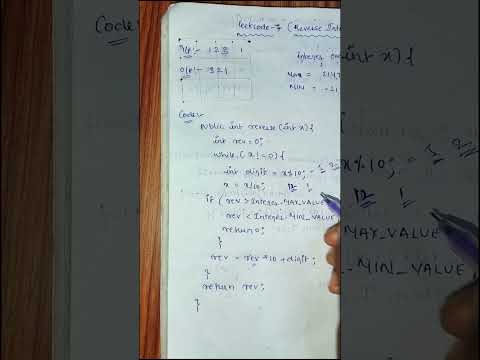 Leetcode-7 (Reverse Int
I/P:- 123
O/P:- 321
Integer
MAX = 214
MIN = -21
Code:-
Public int reverse (int x) {
int rev=0;
while (x!=0) {
int digit = x%10;
x = x/10;
if (rev > Integer.MAX_VALUE
rev < Integer.MIN_VALUE
return 0;
}
rev = rev*10 + digit;
}
return rev;
}
Code:-
int x) {
x%10; =
12 1
MAX_VALUE
MIN_VALUE